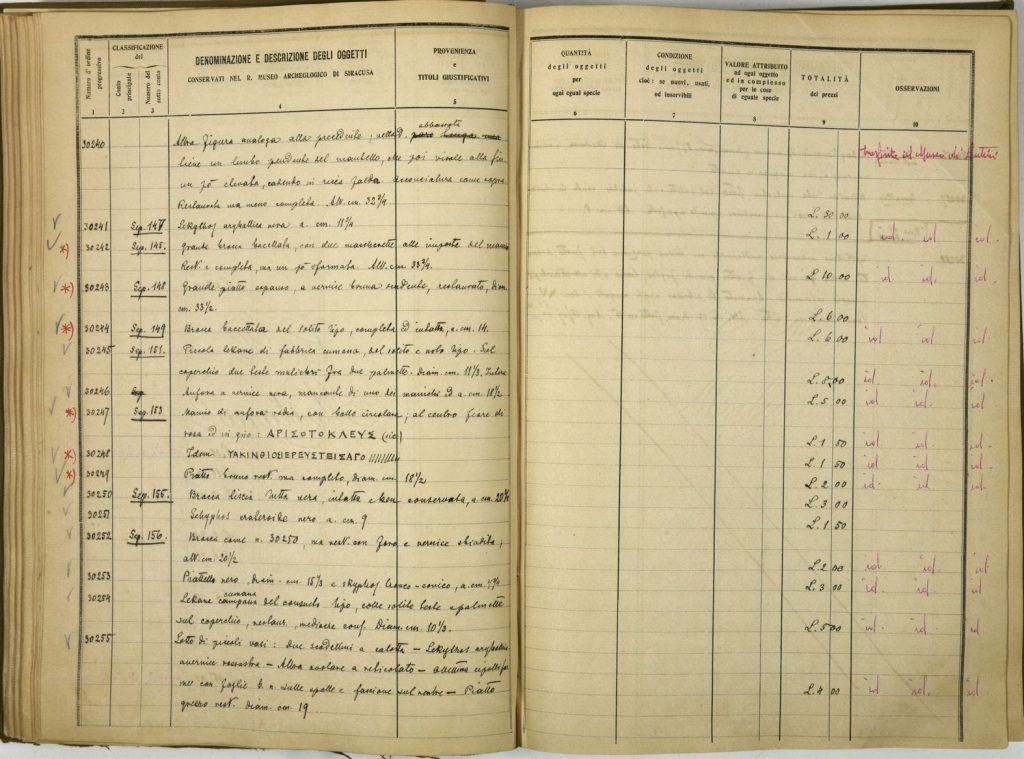 CLASSIFICAZIONE
del
Numero d'ordine
progressivo
Conto
principale
Numero del
sotto conto
DENOMINAZIONE E DESCRIZIONE DEGLI OGGETTI
CONSERVATI NEL R. MUSEO ARCHEOLOGICO DI SIRACUSA
PROVENIENZA
e
TITOLI GIUSTIFICATIVI
QUANTITÀ
degli oggetti
per
ogni egual specie
CONDIZIONE
degli oggetti
cioè: se nuovi, usati,
od inservibili
VALORE ATTRIBUITO
ad ogni oggetto
ed in complesso
per le cose
di eguale specie
TOTALITÀ
dei prezzi
OSSERVAZIONI
1 2 3 4 5 6 7 8 9 10
abbassata
30240 Altra figura analoga alla precedente; nella D.
tiene un lembo pendente del mantello, che poi risale alla
un pò elevata, cadendo in ricca falda. Acconciatura come sopra
Restaurata ma meno completa. Alt. cm. 32 3/4 L. 30 00
30241 Sep. 147 Lekythos nera a. cm. L. 1 00 id. id id.
30242 Sep. 145. Grande baccellata, con due mascherette alle imposte del manico
Rest. e completa, ma un pò sformata. Alt. cm. 33 3/4 L. 10 00 id id. id.
*) 30243 Sep. 148 Grande piatto espanso, a vernice bruna scadente, restaurato, diam.
cm. 33 1/2 L. 6 00
*) 30244 Sep. 149 Brocca baccellata del solito tipo, completa ed intatta, a. cm. 14. L. 6 00 id id id
30245 Sep. 151. Piccola lekane di fabbrica cumana, del solito e noto tipo. Sul
coperchio due teste muliebri fra due palmette. Diam. cm. 11 1/3. L. 8,00 id id. id.
30246 Sep Anfora a vernice nera, mancante di uno dei manichi ed a. cm. 18 1/2 L. 5 00 id id. id.
*) 30247 Sep. 153 Manico di anfora rodia, con bollo circolare; al centro fiore di
rosa ed in giro: ΑΡΙΣΟΤΟΚΛΕΥΣ (sic) L. 1 50 id id. id.
*) 30248 Idem. L. 1 50 id id. id.
*) 30249 Piatto bruno rest. ma completo, diam. cm 18 1/2 L. 2 00 id. id id.
30250 Sep. 155. Brocca liscia tutta nera, intatta e ben conservata, a. cm. L. 3 00
30251 Schyphos crateroide nero a. cm. 9 L. 1 50
30252 Sep. 156. Brocca come n. 30250, ma rest. con foro e vernice sbiadita;
alt. cm. 20 1/2 L. 2 00 id id. id
30253 Piattello nero, diam. cm. 15 1/3 e skyphos tronco-conico, a. cm. L. 3 00 id id. id
cumana
30254 Lekane campana del consueto tipo, colle solite teste e palmette
sul coperchio, restaur., mediocre conf. Diam. cm. 10 1/3. L. 5 00 id. id. id
30255 Lotto di piccoli vasi: due scodellini a calotta — Lekythos
a vernice rossastra — Altra ovolare a reticolato —
me con foglie b. n. sulle spalle e fascione sul ventre — Piatto L. 4 00 id id. id
grezzo rest. diam. cm 19